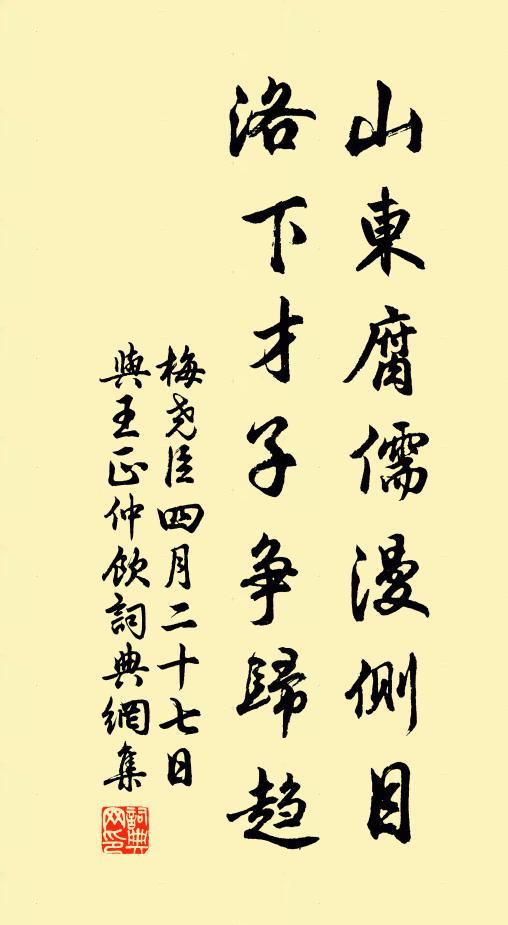 山東腐儒漫側目
洛下才子争歸趋
梅尧臣四月二十七日
與王正仲飲詞典網集
詞典網印